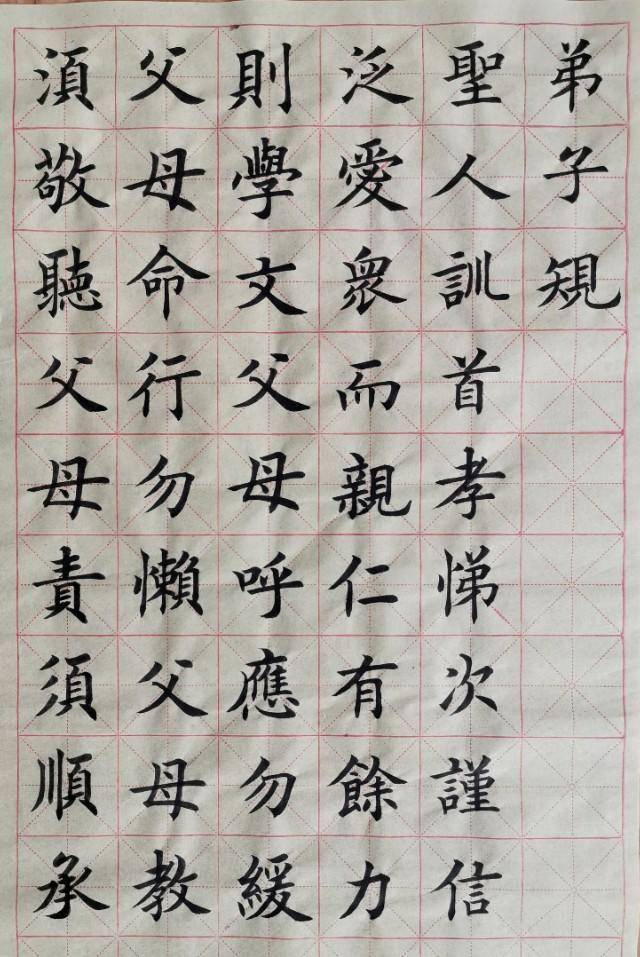 弟子規
聖人訓首孝悌次謹信
泛愛眾而親仁有餘力
則學文父母呼應勿緩
父母命行勿懶父母教
湏敬聽父母責須順承